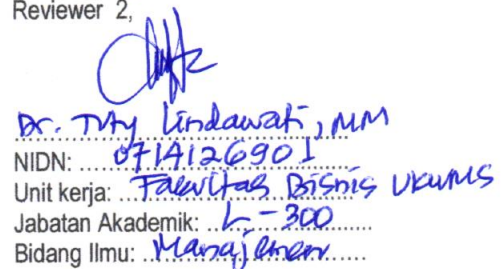 Reviewer 2,
Dr. Tuty Lindawati, MM
NIDN: 0714126901
Unit kerja: Fakultas Bisnis UKWMS
Jabatan Akademik: L - 300
Bidang Ilmu: Manajemen